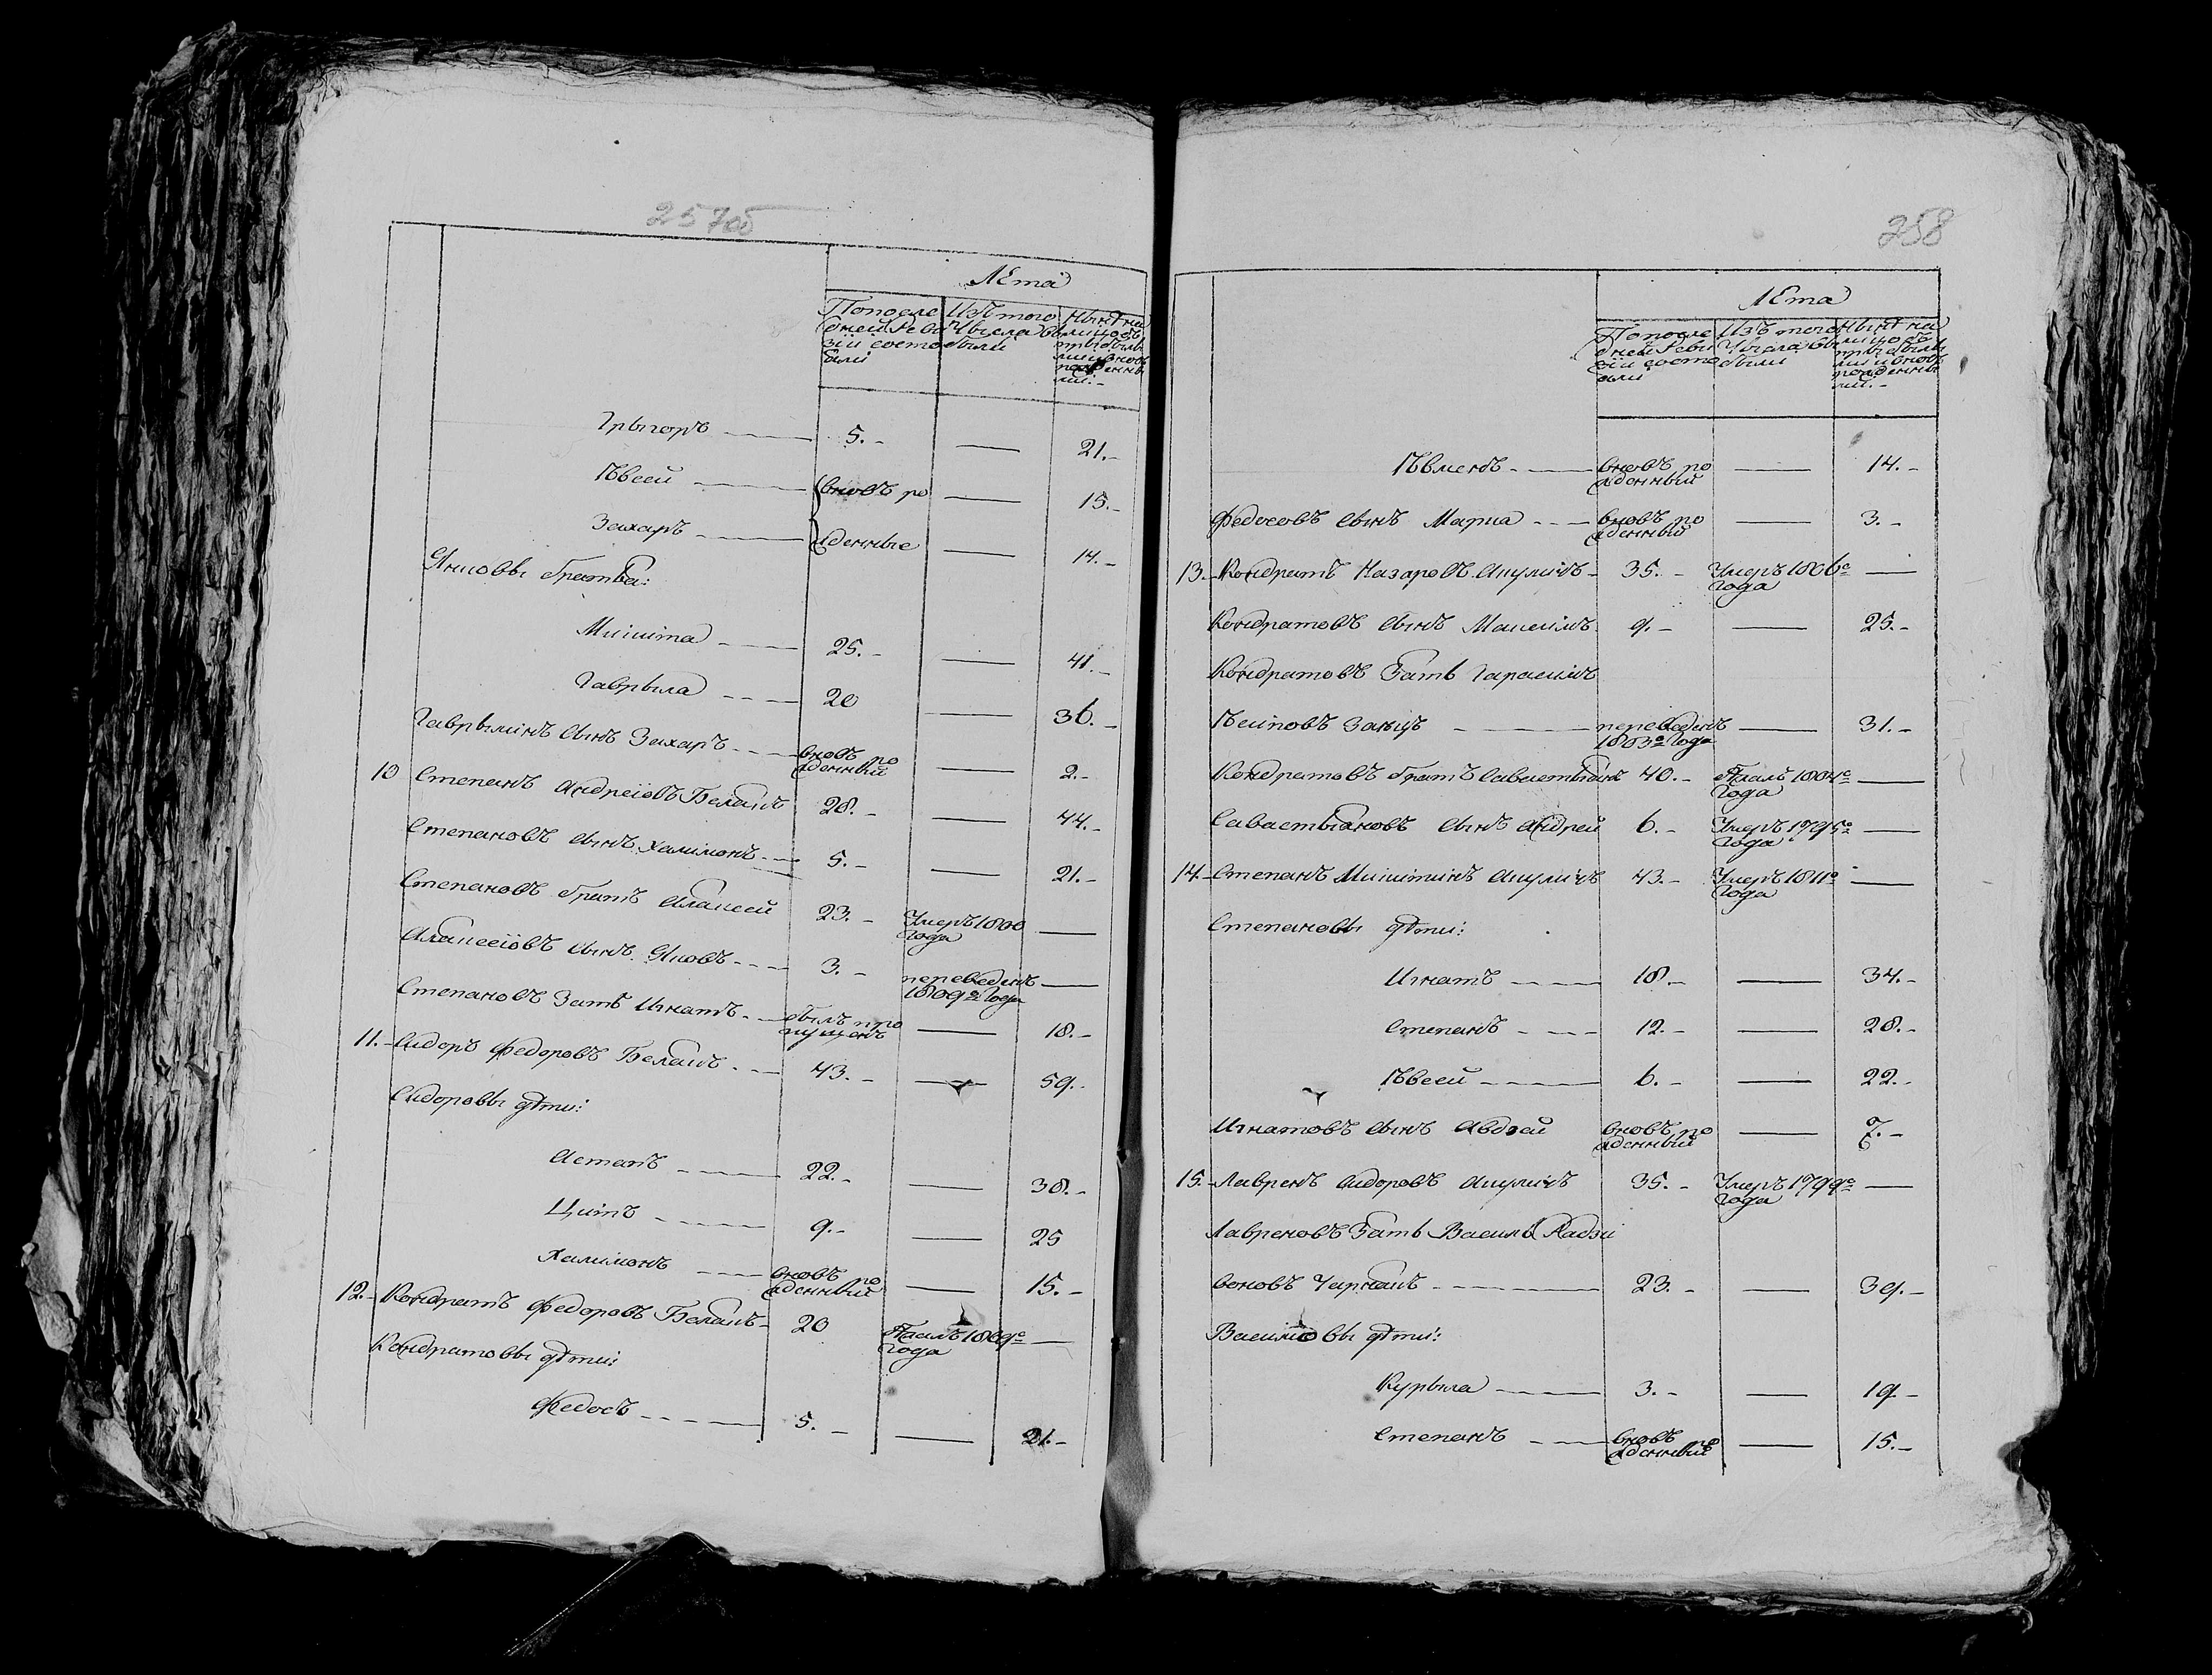 257об
Лѣта
Попосле
дней Реви
зіи состо
яли
Изъ того
Числа вы
были
Нынѣ на
лицо съ
прыбылы
ми и вновь
рожденны
ми.-
Грыгоръ 5.- — 21.-
Евсей вновь ро — 15.-
Захаръ жденные — 14.-
Янковы братья:
Микита 25.- — 41.-
Гаврыла 20 — 36.-
Гаврылинъ сынъ Захаръ вновь ро
жденный — 2.-
10 Степанъ Андреіовъ Белашъ 28.- — 44.-
Степановъ сынъ Халимонъ 5.- — 21.-
Степановъ братъ Алаксей 23.- Умеръ 1800
года —
Алаксеіовъ сынъ Яковъ 3.- переведенъ
1809го Года —
Степановъ Зать Игнатъ былъ про
пущенъ — 18.-
11.- Сидоръ Федоровъ Белашъ 43.- — 59.-
Сидоровы дѣти:
Астапъ 22.- — 38.-
Цитъ 9.- — 25
Халимонъ вновь ро
жденный — 15.-
12.- Кондратъ Федоровъ Белашъ 20 1809го
года —
Кондратовы дѣти:
Федосъ 5.- — 21.-
258
Лѣта
Попосле
дней Реви
зіи состо
яли
Изъ того
Числа вы
были
Нынѣ на
лицо съ
прыбылы
ми и вновь
рожденны
ми.-
вновь ро
жденный — 14.-
Федосовъ сынъ вновь ро
жденный — 3.-
13.- Кондратъ Назаровъ Акуличъ 35.- Умеръ 1806го
года —
Кондратовъ сынъ Максимъ 9.- — 25.-
Кондратовъ Зать Гарасимъ
Заяцъ переведенъ
1803го Года — 31.-
Кондратовъ братъ Савастыянъ 40.- 1804го
года —
Савастыановъ сынъ Андрей 6.- Умеръ 1795го
года —
14.- Степанъ Микитинъ Акуличъ 43.- Умеръ 1811го
года —
Степановы дѣти:
Игнатъ 18.- — 34.-
Степанъ 12.- — 28.-
Евсей 6.- — 22.-
Игнатовъ сынъ Авдзей вновь ро
жденный — 7.-
15.- Лавренъ Сидоровъ Акуличъ 35.- Умеръ 1799го
года —
Лавреновъ Зать Василь Радзи
воновъ 23.- — 39.-
Васильовы дѣти:
Курыла 3.- — 19-
Степанъ вновь ро
жденный — 15.-